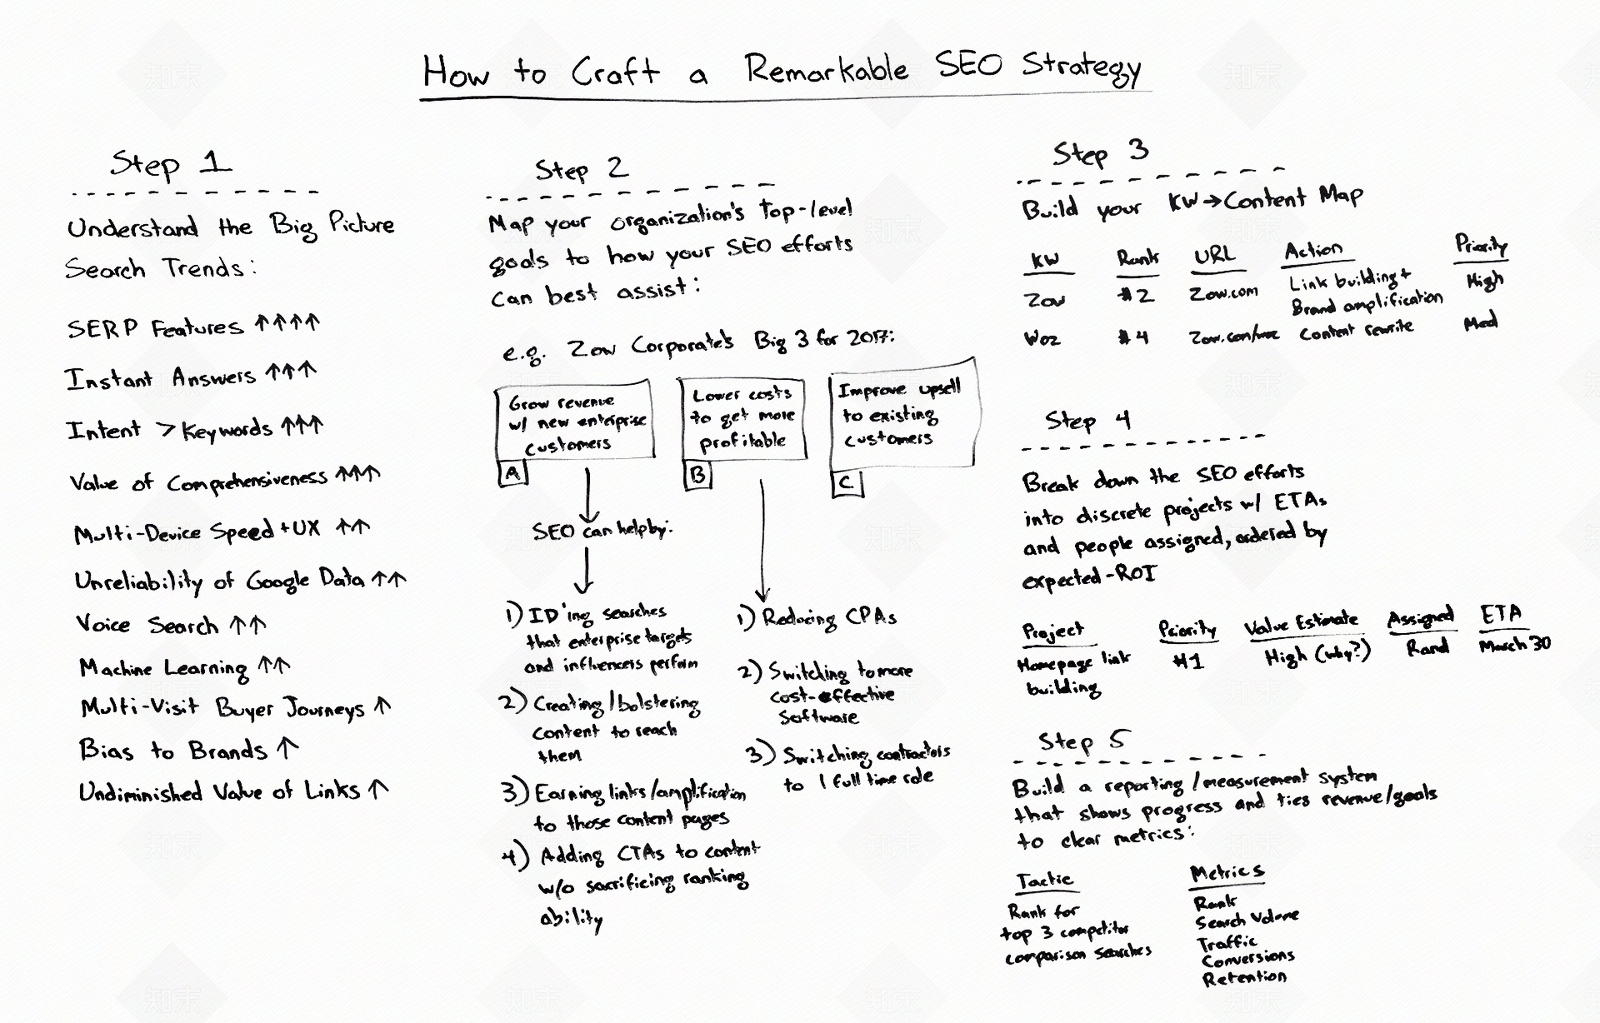 How to Craft a Remarkable SEO Strategy
Step 1
Understand the Big Picture
Search Trends:
SERP Features ↑↑↑↑
Instant Answers ↑↑↑
Intent > Keywords ↑↑↑
Value of Comprehensiveness ↑↑↑
Multi-Device Speed + UX ↑↑
Unreliability of Google Data ↑↑
Voice Search ↑↑
Machine Learning ↑↑
Multi-Visit Buyer Journeys ↑
Bias to Brands ↑
Undiminished Value of Links ↑
Step 2
Map your organization's top-level
goals to how your SEO efforts
can best assist:
e.g. Zow Corporate's Big 3 for 2017:
Grow revenue
w/ new enterprise
customers
A
Lower costs
to get more
profitable
B
Improve upsell
to existing
customers
C
SEO can help by:
1) ID'ing searches
that enterprise targets
and influencers perform
2) Creating/bolstering
content to reach
them
3) Earning links/amplification
to those content pages
4) Adding CTAs to content
w/o sacrificing ranking
ability
1) Reducing CPAs
2) Switching to more
cost-effective
software
3) Switching contractors
to 1 full time role
Step 3
Build your KW→Content Map
KW Rank URL Action Priority
Zow #2 Zow.com Link building + High
Brand amplification
Woz #4 Zow.com/woz Content rewrite Med
Step 4
Break down the SEO efforts
into discrete projects w/ ETAs
and people assigned, ordered by
expected-ROI
Project Priority Value Estimate Assigned ETA
Homepage link #1 High (why?) Rand March 30
building
Step 5
Build a reporting/measurement system
that shows progress and ties revenue/goals
to clear metrics:
Tactic
Rank for
top 3 competitor
comparison searches
Metrics
Rank
Search Volume
Traffic
Conversions
Retention
知末